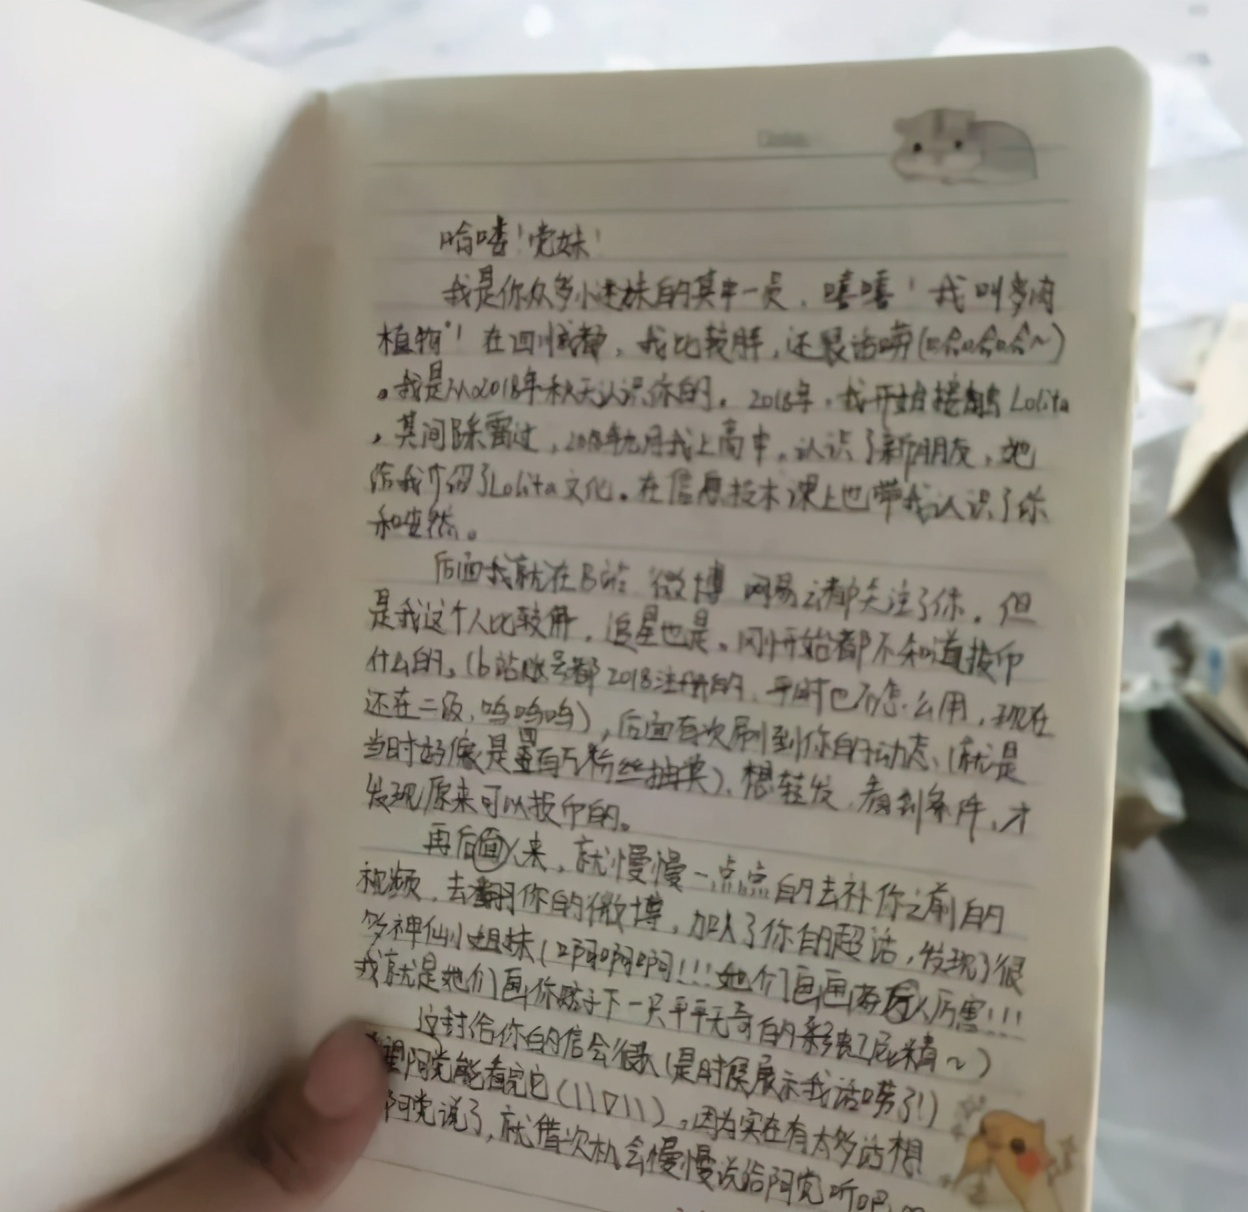 哈喽！党妹！
我是你众多小迷妹的其中一员，嘻嘻！我叫多肉
植物！在四川成都，我比较胖，还很话唠(哈哈哈哈~)
。我是从2018年秋天认识你的。2018年，我开始接触Lolita
，其间踩雷过，2018年九月我上高中。认识了新朋友，她
给我介绍了Lolita文化。在信息技术课上也带我认识了你
和
后面我就在B站 微博 网易云都关注了你。但
是我这个人比较，追星也是。刚开始都不知道投币
什么的。(b站账号都2018注册的，平时也不怎么用，现在
还在二级，呜呜呜)，后面有次刷到你的动态、(就是
当时好像是四百万粉丝抽奖)、想转发，看到条件，才
发现原来可以投币的。
再后面来，就慢慢一点点的去补你之前的
视频，去翻你的微博，加入了你的超话，发现了很
多神仙小姐妹(啊啊啊啊！！！她们画画厉害！！！
我就是她们画你脖子下一只平平无奇的彩虹屁精~)
这封给你的信会很(是时候展示我话唠了！)
望阿党能看完它(\\▽\\)，因为实在有太多话想
阿党说了，就借次机会慢慢说给阿党听吧